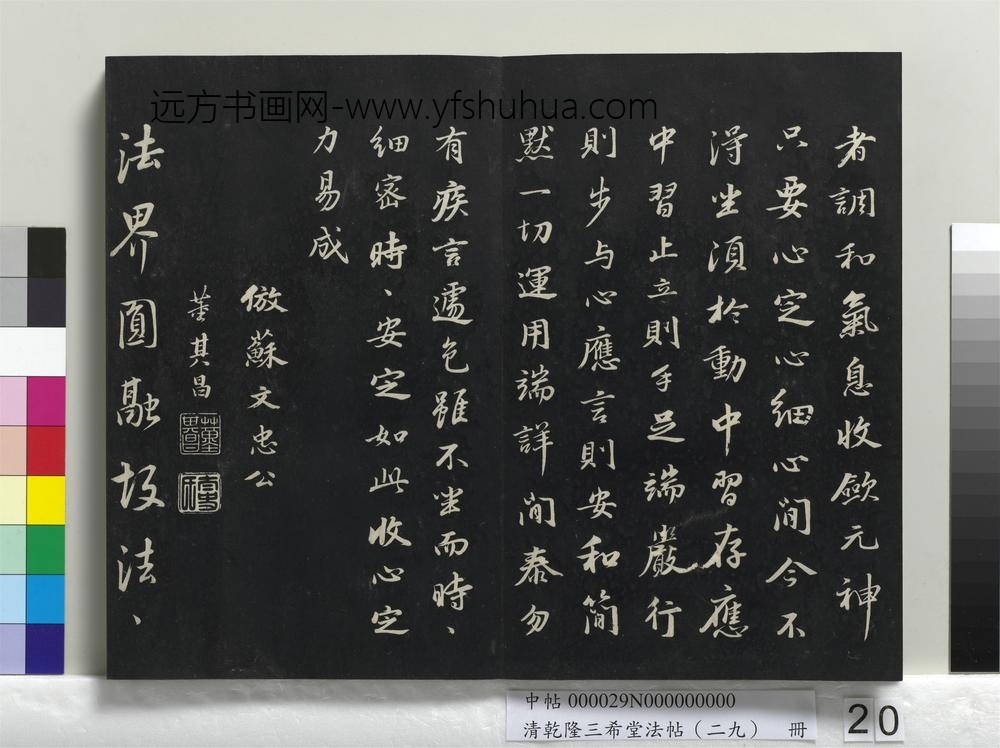 远方书画网-www.yfshuhua.com
者調和氣息收歛元神
只要心定心細心閒今不
得坐須於動中習存應
中習止立則手足端嚴行
則步与心應言則安和簡
默一切運用端詳閒泰勿
有疾言遽色雖不坐而時〻
細密時〻安定如此收心定
力易成
倣蘇文忠公
董其昌
法界圓融故法〻
中帖 000029N000000000
清乾隆三希堂法帖（二九） 冊
20